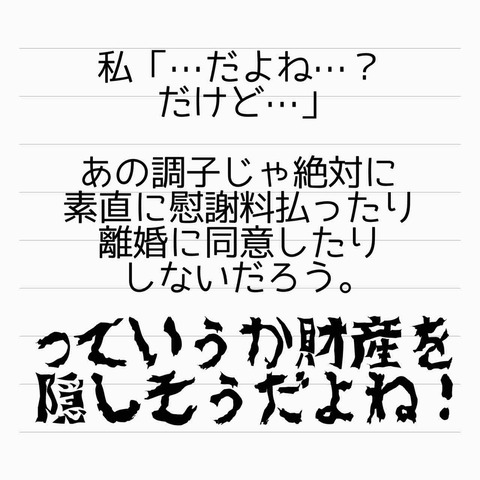 私「…だよね…？
だけど…」
あの調子じゃ絶対に
素直に慰謝料払ったり
離婚に同意したり
しないだろう。
っていうか財産を
隠しそうだよね！